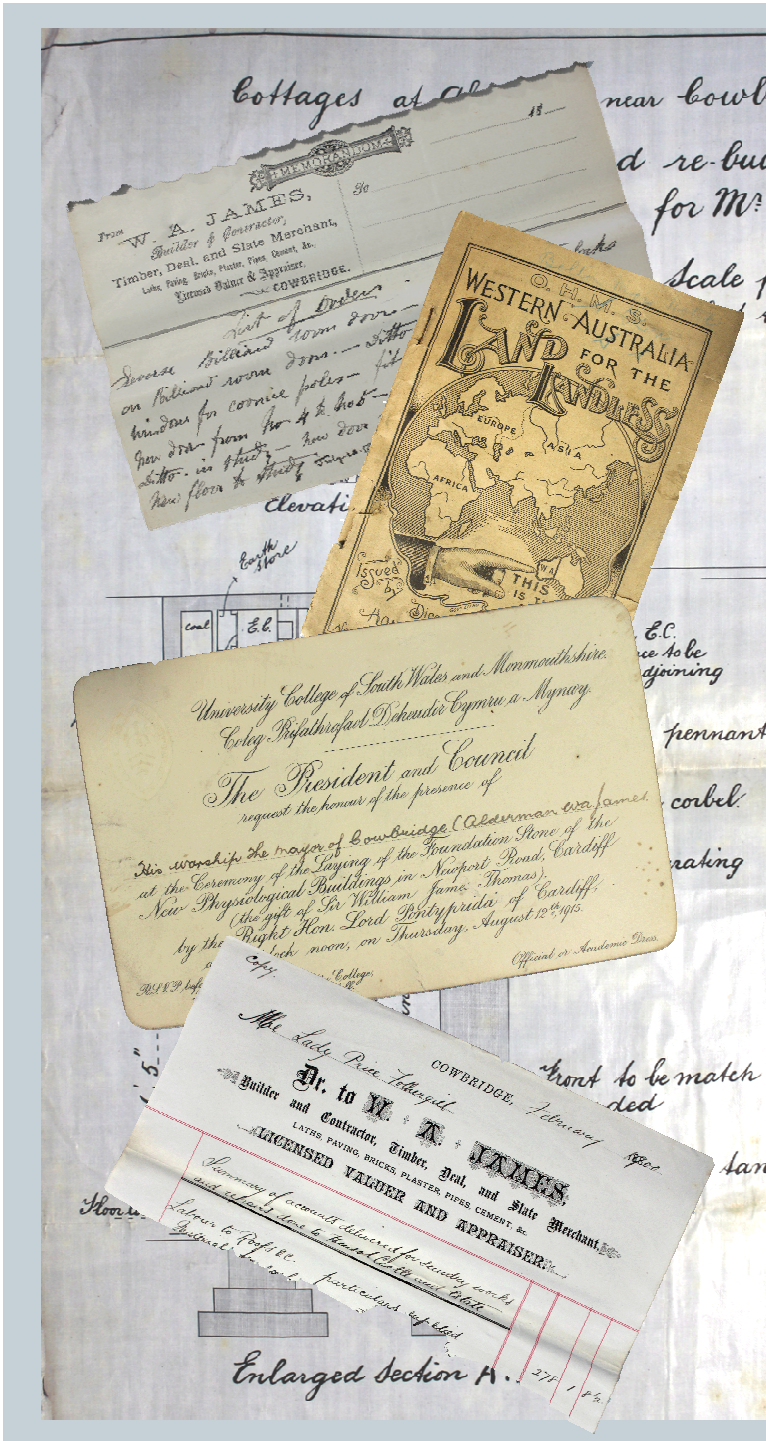 Cottages at near Cowb
d re-bui
for Mr.
Scale p
MEMORANDUM
18
From
To
W. A. JAMES,
Builder & Contractor,
Timber, Deal, and Slate Merchant,
Laths, Paving, Bricks, Plaster, Pipes, Cement, &c.
Licensed Valuer & Appraiser,
COWBRIDGE.
List of Orders
Billiard room door
on Billiard room door — Ditto
windows for cornice poles — fit
new door from No 4 to No 5
Ditto in study — new door
New floor to study
O. H. M. S.
WESTERN AUSTRALIA
LAND FOR THE
LANDLESS
EUROPE
ASIA
AFRICA
W A
THIS
IS T
Issued
by
Elevati
Earth
Store
coal
E.C.
E.C.
ce to be
djoining
pennant
corbel.
rating
University College of South Wales and Monmouthshire.
Coleg Prifathrofaol Deheudir Cymru a Mynwy.
The President and Council
request the honour of the presence of
His worship the mayor of Cowbridge (Alderman W.A. James
at the Ceremony of the Laying of the Foundation Stone of the
New Physiological Buildings in Newport Road, Cardiff
(the gift of Sir William James Thomas),
by the Right Hon. Lord Pontypridd of Cardiff,
lock noon, on Thursday, August 12th, 1915.
R.S.V.P. College,
Official or Academic Dress.
copy.
5"
Front to be match
ded
Floor
COWBRIDGE, February 1900
Lady Price
Dr. to W. A. JAMES,
Builder and Contractor, Timber, Deal, and Slate Merchant,
LATHS, PAVING, BRICKS, PLASTER, PIPES, CEMENT, &c.
LICENSED VALUER AND APPRAISER.
Summary of accounts delivered for sundry works
and repairs done to Hensol Castle and Estate
Labour to Roofs &c.
particulars supplied
278 1 8½
Enlarged Section A.